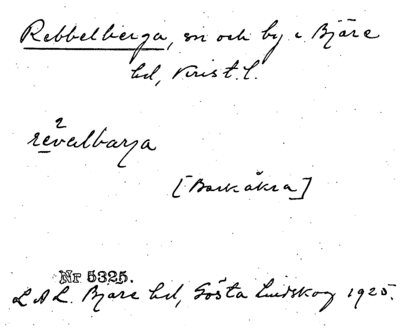 Rebbelberga, sn och by i Bjäre
hd, Krist. l.
2
révalbarja
[Barkåkra]
Nr 5325.
L A L. Bjäre hd, Gösta Lindskog 1925.